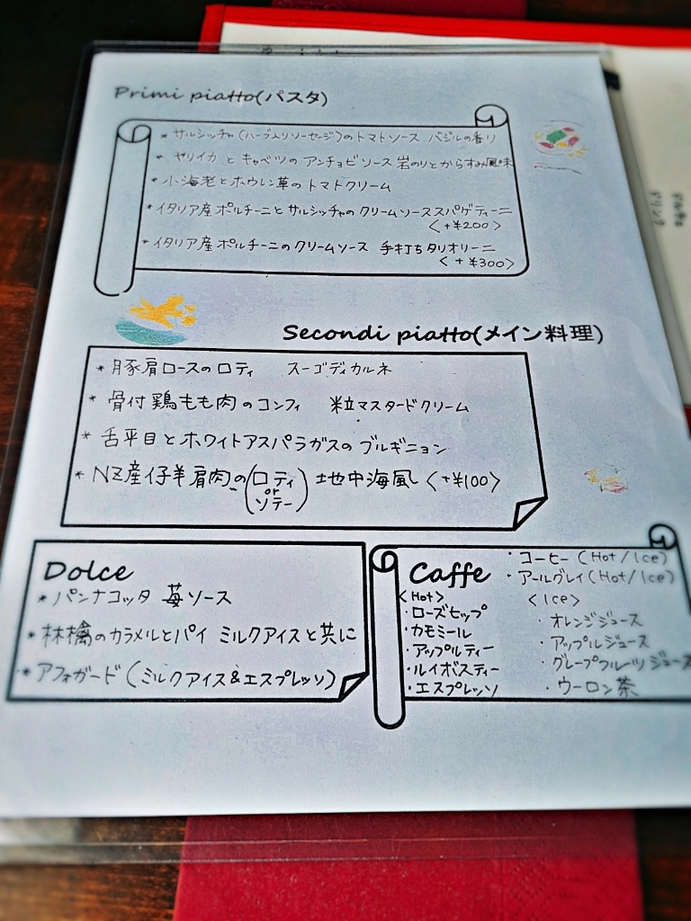 Primi piatto(パスタ)
* サルシッチャ(ハーブ入りソーセージ)のトマトソース バジルの香り
* ヤリイカ と キャベツの アンチョビソース 岩のりとからすみ風味
* 小海老とホウレン草の トマトクリーム
* イタリア産ポルチーニと サルシッチャの クリームソーススパゲティーニ
<+¥200>
* イタリア産 ポルチーニの クリームソース 手打ちタリオリーニ
<+¥300>
Secondi piatto(メイン料理)
* 豚肩ロースの ロティ スーゴディカルネ
* 骨付鶏もも肉のコンフィ 粒マスタードクリーム
* 舌平目とホワイトアスパラガスの ブルギニョン
* NZ産仔羊肩肉の(ロティ or ソテー) 地中海風 <+¥100>
Dolce
* パンナコッタ 苺ソース
* 林檎のカラメルとパイ ミルクアイスと共に
* アフォガード (ミルクアイス&エスプレッソ)
Caffe
・コーヒー (Hot/Ice)
・アールグレイ (Hot/Ice)
<Hot>
・ローズヒップ
・カモミール
・アップルティー
・ルイボスティー
・エスプレッソ
<Ice>
・オレンジジュース
・アップルジュース
・グレープフルーツジュース
・ウーロン茶